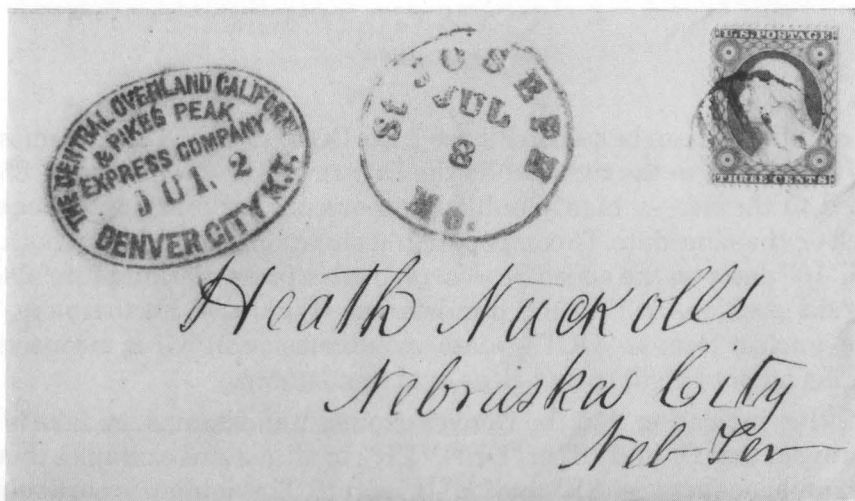 THE CENTRAL OVERLAND CALIFORNIA
& PIKES PEAK
EXPRESS COMPANY
JUL 2
DENVER CITY K.T.
St JOSEPH
JUL
8
Mo.
U.S. POSTAGE
THREE CENTS
Heath Nuckolls
Nebraska City
Neb Ter